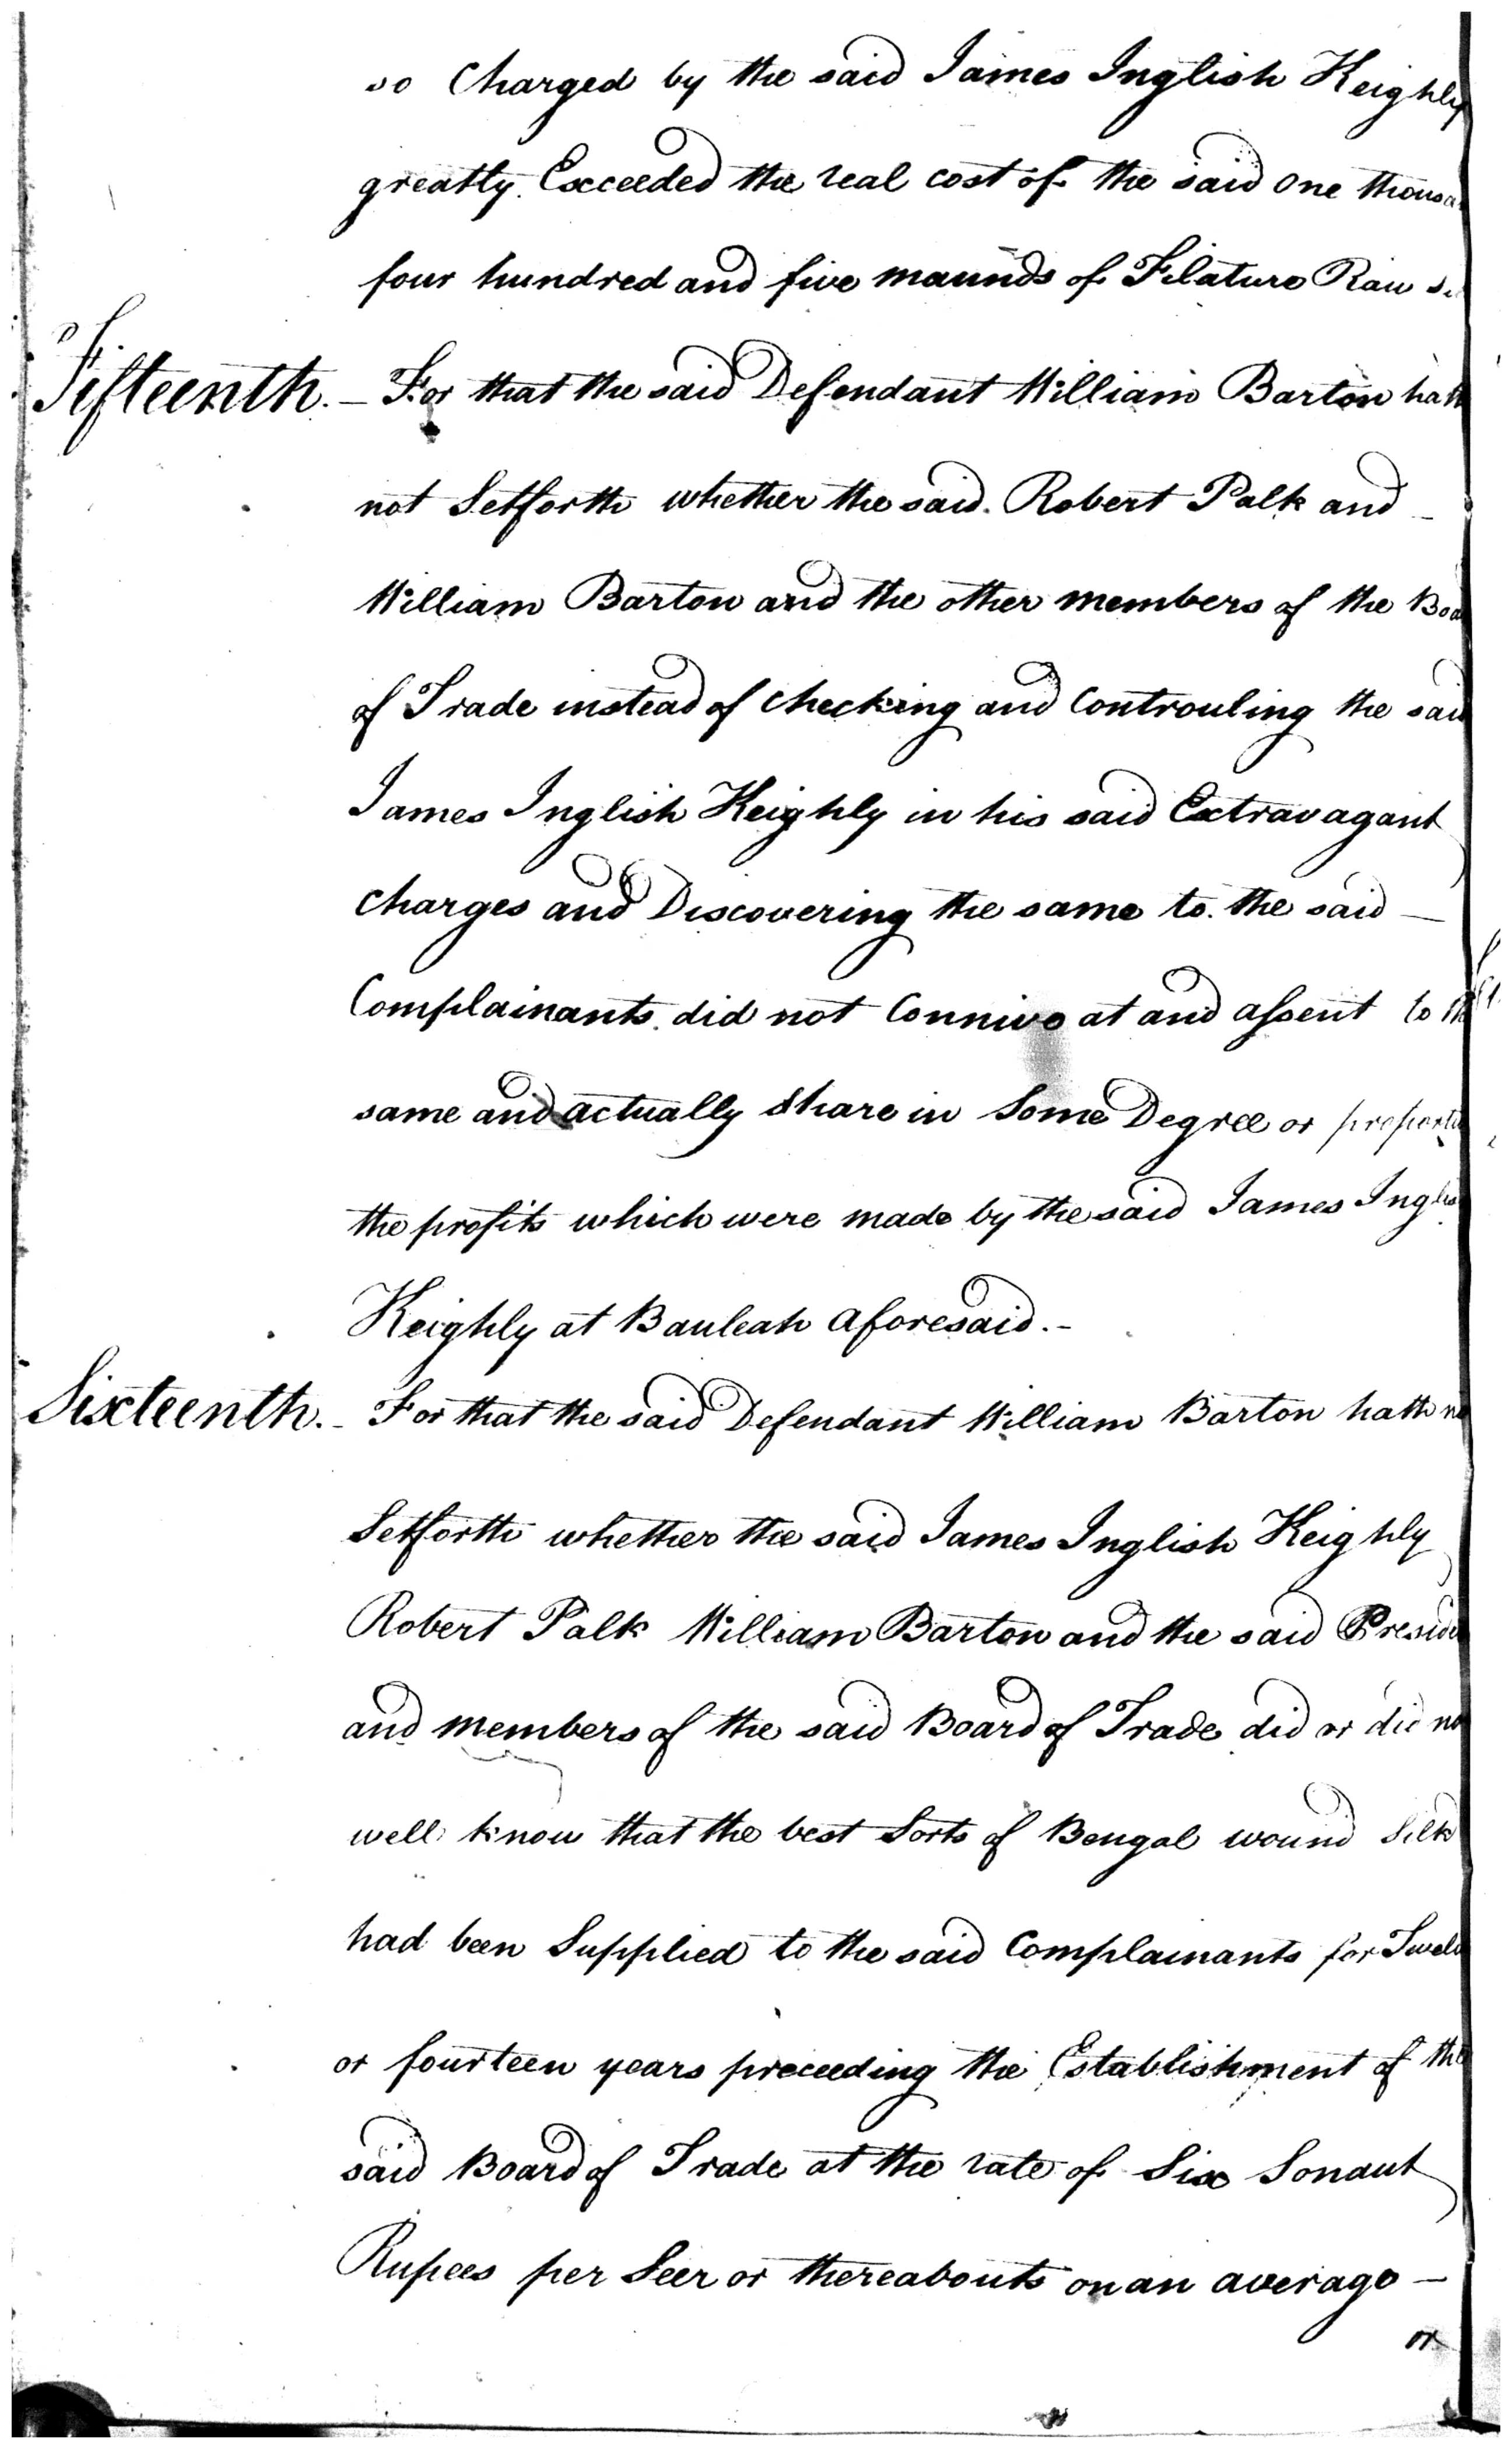 so Charged by the said James Inglish Keighly
greatly Exceeded the real cost of the said One thousa
four hundred and five maunds of Filature Raw
Fifteenth. - For that the said Defendant William Barton hath
not Setforth whether the said Robert Palk and -
William Barton and the other members of the Boa
of Trade instead of checking and Controuling the said
James Inglish Keighly in his said Extravagant
charges and Discovering the same to the said -
Complainants did not Connive at and assent to the
same and actually share in Some Degree or proporti
the profits which were made by the said James Inglis
Keighly at Bauleah aforesaid. -
Sixteenth. - For that the said Defendant William Barton hath no
Setforth whether the said James Inglish Keighly
Robert Palk William Barton and the said Preside
and members of the said Board of Trade did or did no
well know that the best Sorts of Bengal wound Silk
had been Supplied to the said Complainants for Twelv
or fourteen years preceeding the Establishment of the
said Board of Trade at the rate of Six Sonaut
Rupees per Seer or thereabouts on an average -
or